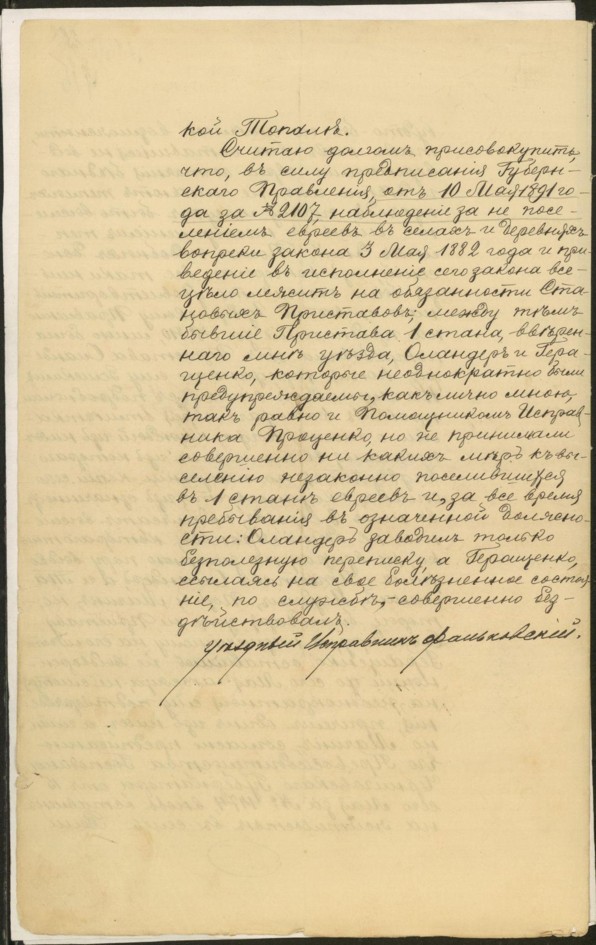 кой Топалѣ.
Считаю долгомъ присовокупить,
что, въ силу предписанія Губерн-
скаго Правленія, отъ 10 Мая 1891 го-
да за № 2107, наблюденіе за не посе-
леніемъ евреевъ въ селахъ и деревняхъ
вопреки закона 3 Мая 1882 года и при-
веденіе въ исполненіе сего закона все-
цѣло лежитъ на обязанности Ста-
новыхъ Приставовъ; между тѣмъ
бывшіе Пристава 1 стана, ввѣрен-
наго мнѣ уѣзда, Оландеръ и Гера-
щенко, которые неоднократно были
предупреждаемы, какъ лично мною,
такъ равно и Помощникомъ Исправ-
ника Проценко, но не принимали
совершенно ни какихъ мѣръ къ вы-
селенію незаконно поселившихся
въ 1 станѣ евреевъ и, за все время
пребыванія въ означенной должно-
сти: Оландеръ заводилъ только
безполезную переписку, а Геращенко,
ссылаясь на свое болѣзненное состоя-
ніе, по службѣ,- совершенно без-
дѣйствовалъ.
Уѣздный Исправникъ Фальковскій.